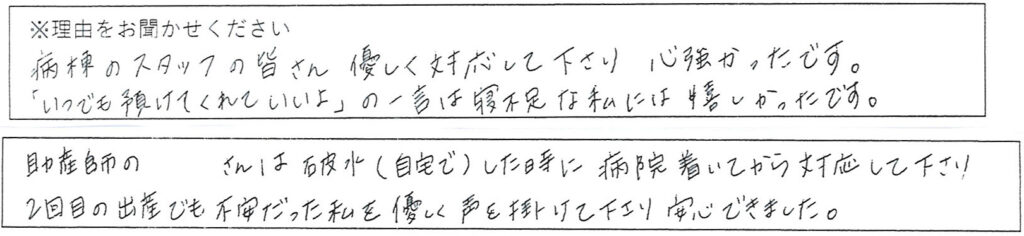 ※理由をお聞かせください
病棟のスタッフの皆さん 優しく対応して下さり 心強かったです。
「いつでも預けてくれていいよ」の一言は寝不足な私には嬉しかったです。
助産師の さんは破水(自宅で)した時に 病院着いてから対応して下さり
2回目の出産でも不安だった私を優しく声を掛けて下さり安心できました。